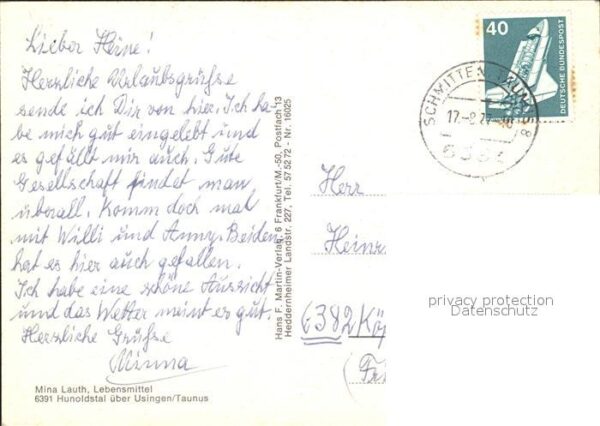 Lieber Heine!
Herzliche Urlaubsgrüße
sende ich Dir von hier. Ich ha-
be mich gut eingelebt und
es gefällt mir auch. Gute
Gesellschaft findet man
überall. Komm doch mal
mit Willi und Anny. Beiden
hat es hier auch gefallen.
Ich habe eine schöne Aussicht
und das Wetter meint es gut.
Herzliche Grüße
Minna
Mina Lauth, Lebensmittel
6391 Hunoldstal über Usingen/Taunus
Hans F. Martin-Verlag, 6 Frankfurt/M.-50, Postfach 13
Heddernheimer Landstr. 227, Tel. 57 52 72 - Nr. 16025
40
DEUTSCHE BUNDESPOST
SCHMITTEN, TAUNUS
Herr
Heinr
6382 
privacy protection
Datenschutz